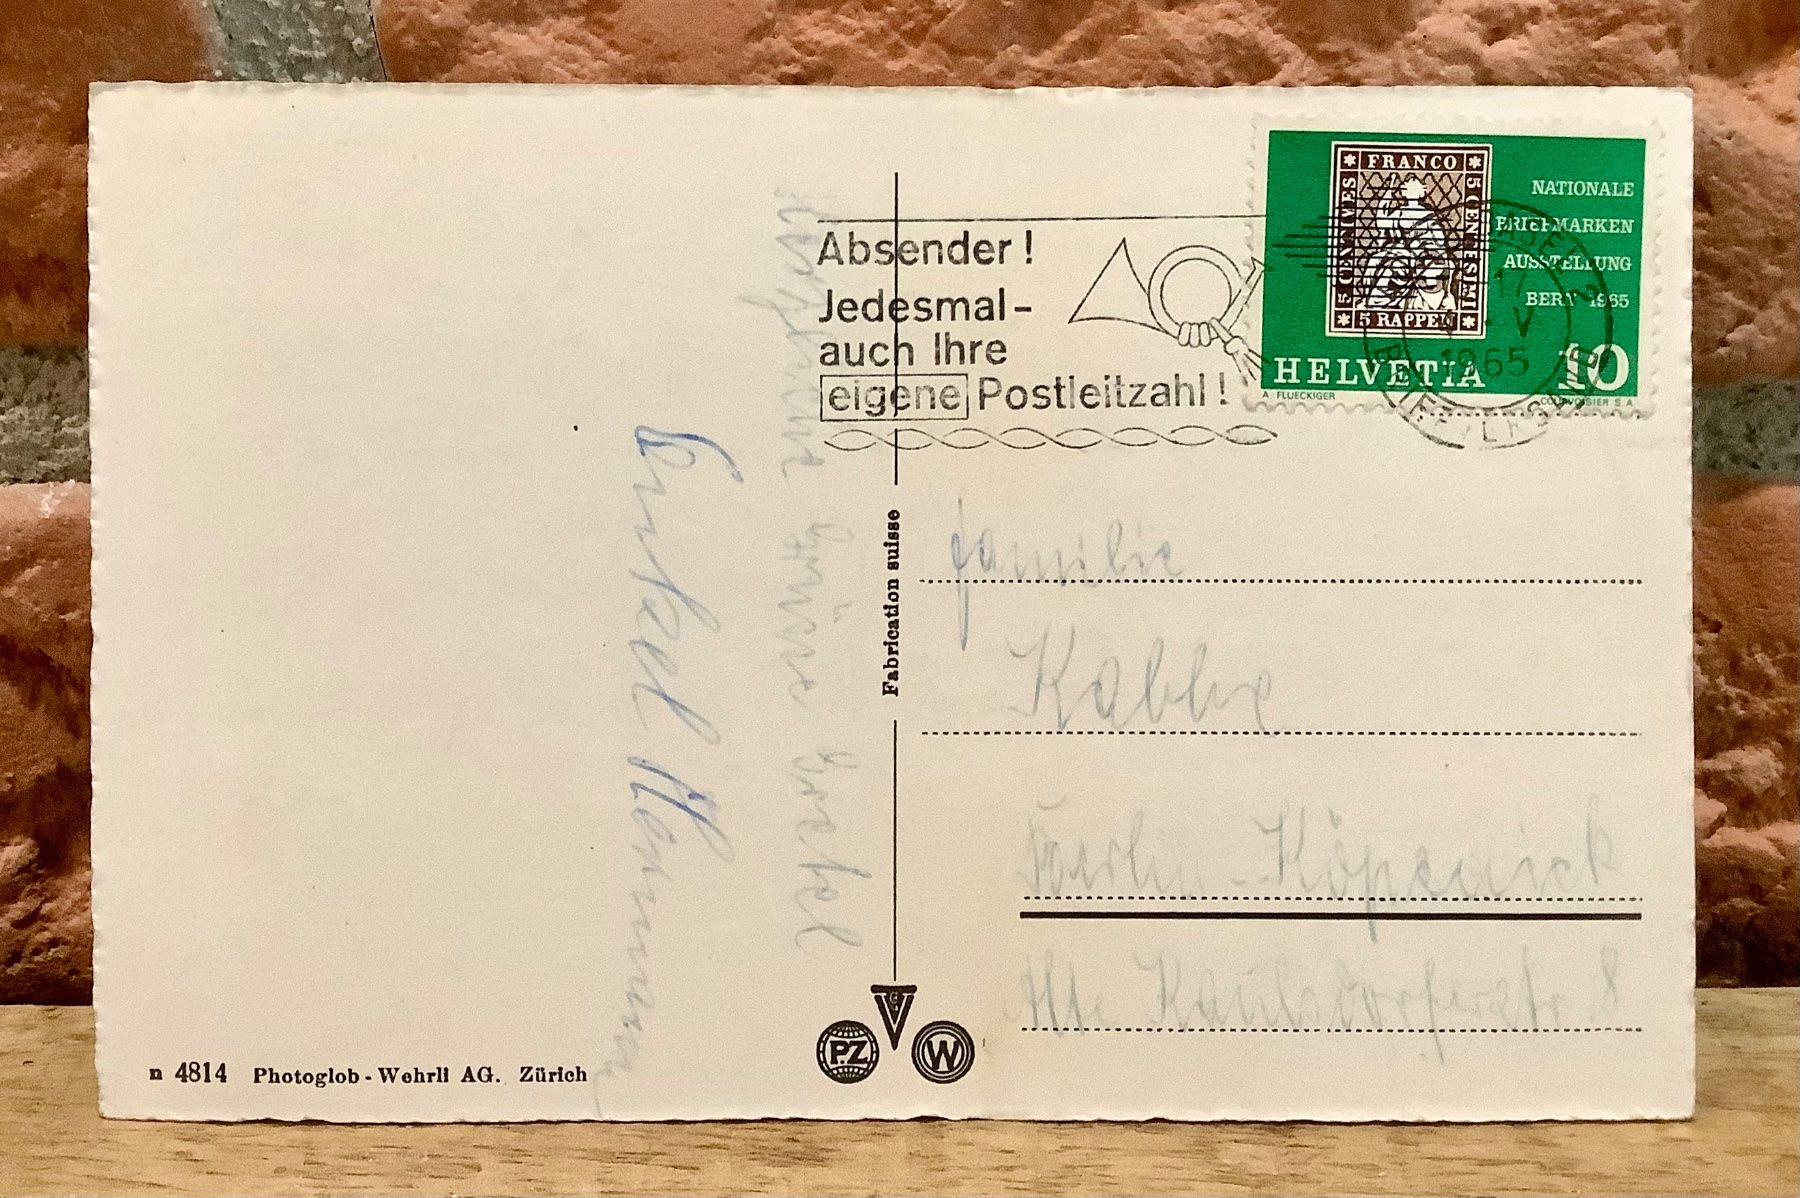 Absender!
Jedesmal-
auch Ihre
eigene Postleitzahl!
FRANCO
5 CENTIMES
5 CENTESIMI
5 RAPPEN
NATIONALE
BRIEFMARKEN
AUSSTELLUNG
BERN 1965
HELVETIA 10
A. FLUECKIGER
COURVOISIER S.A.
BASEL 2
V
1965
BRIEFVERSAND
Grüsse
Fabrication suisse
Familie
Kabbe
Berlin-Köpenick
Alte Kaulsdorferstr. 8
PZ
W
n 4814 Photoglob-Wehrli AG. Zürich